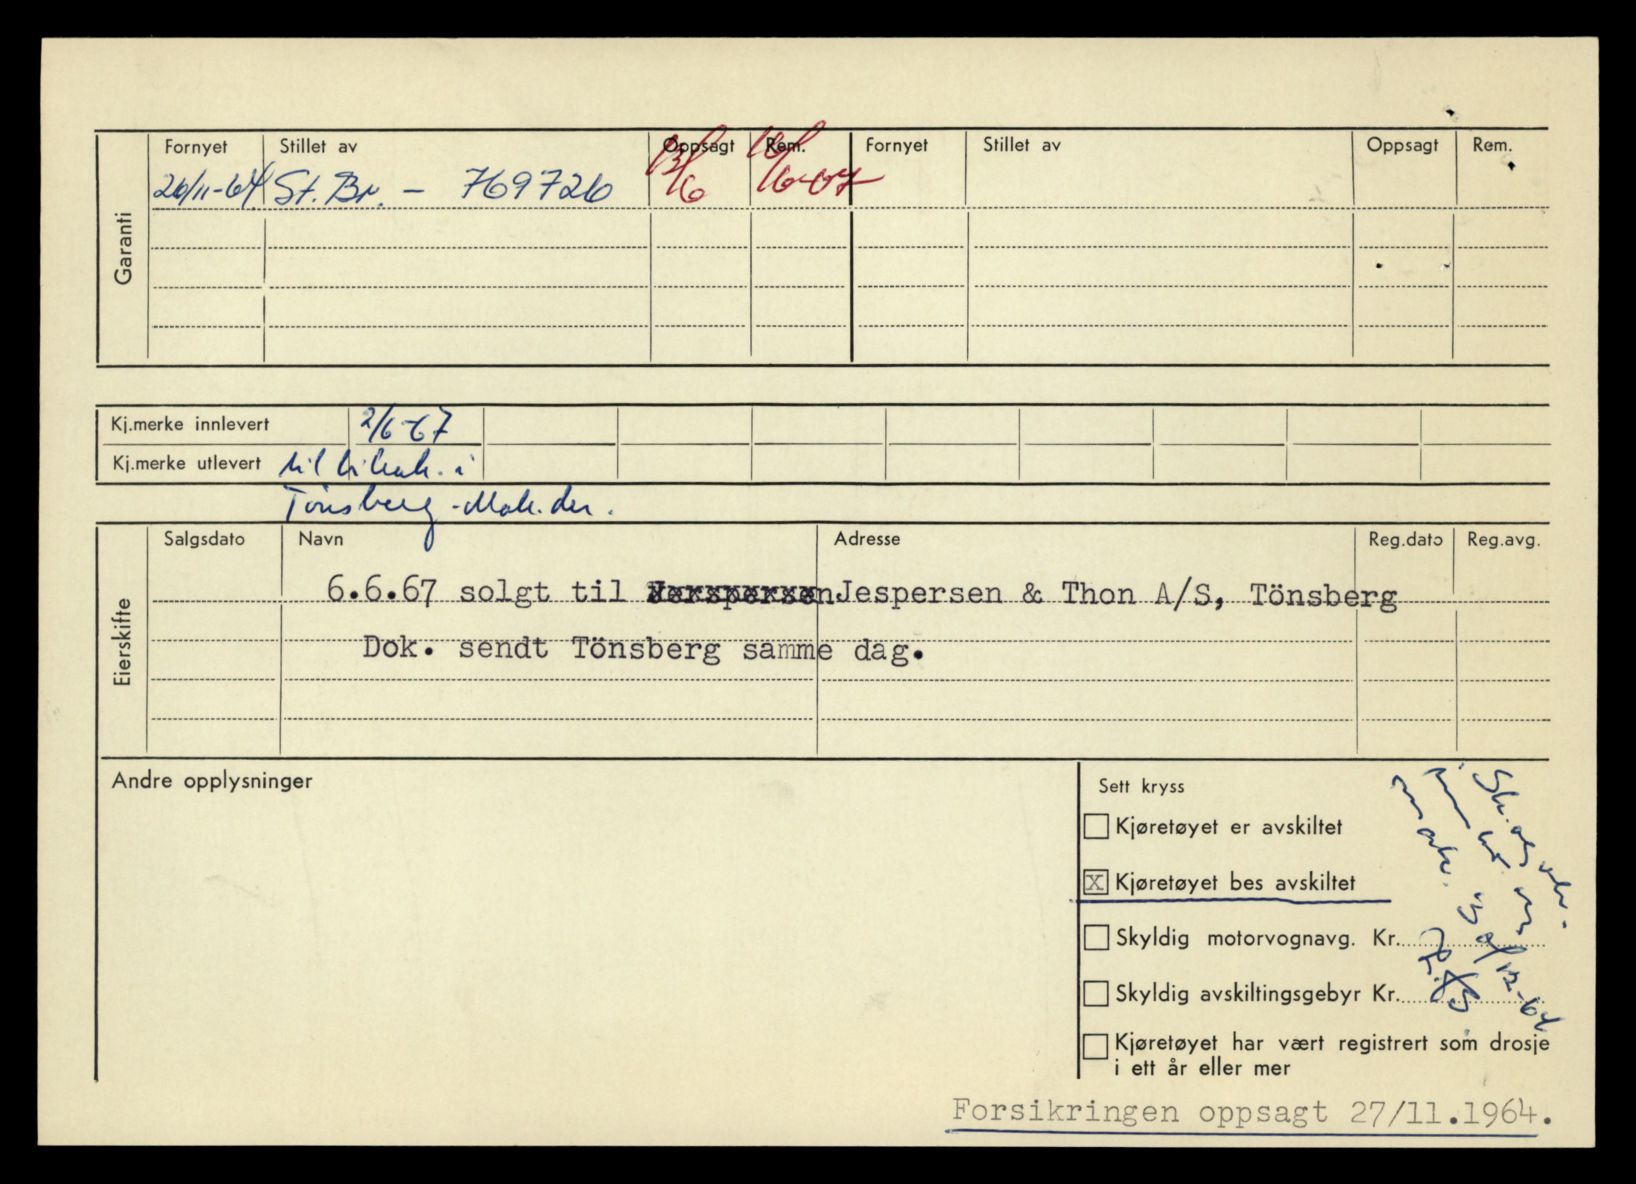 Garanti
Fornyet Stillet av Oppsagt Rem. Fornyet Stillet av Oppsagt Rem.
26/11-64 St. Br. - 769726
Kj.merke innlevert 2/6-67
Kj.merke utlevert til bilsak. i
Tønsberg
Eierskifte
Salgsdato Navn Adresse Reg.dato Reg.avg.
6.6.67 solgt til Jespersen & Thon A/S, Tönsberg
Dok. sendt Tönsberg samme dag.
Andre opplysninger
Sett kryss
Kjøretøyet er avskiltet
X Kjøretøyet bes avskiltet
Skyldig motorvognavg. Kr.
Skyldig avskiltingsgebyr Kr.
Kjøretøyet har vært registrert som drosje
i ett år eller mer
Forsikringen oppsagt 27/11.1964.